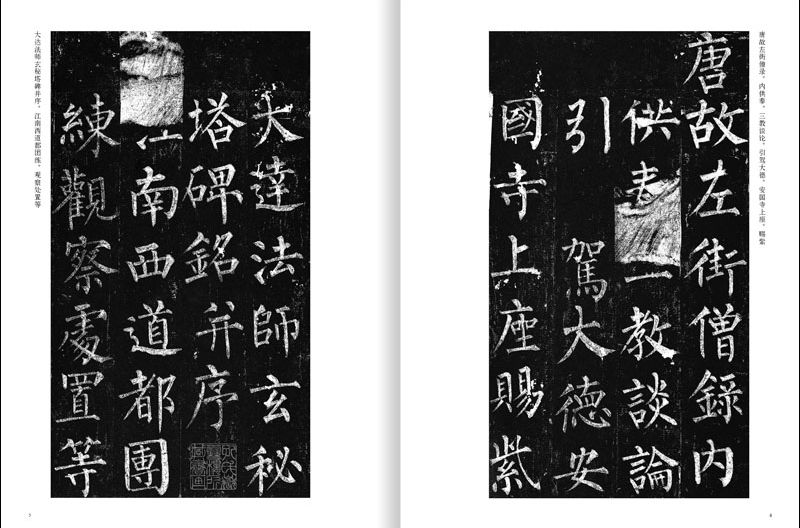 唐故左街僧录、内供奉、三教谈论、引驾大德、安国寺上座、赐紫
唐故左街僧錄内
供奉 教談論
引駕大德安
國寺上座賜紫
大達法師玄秘
塔碑銘并序
江南西道都團
練觀察處置等
大达法师玄秘塔碑并序。江南西道都团练、观察处置等